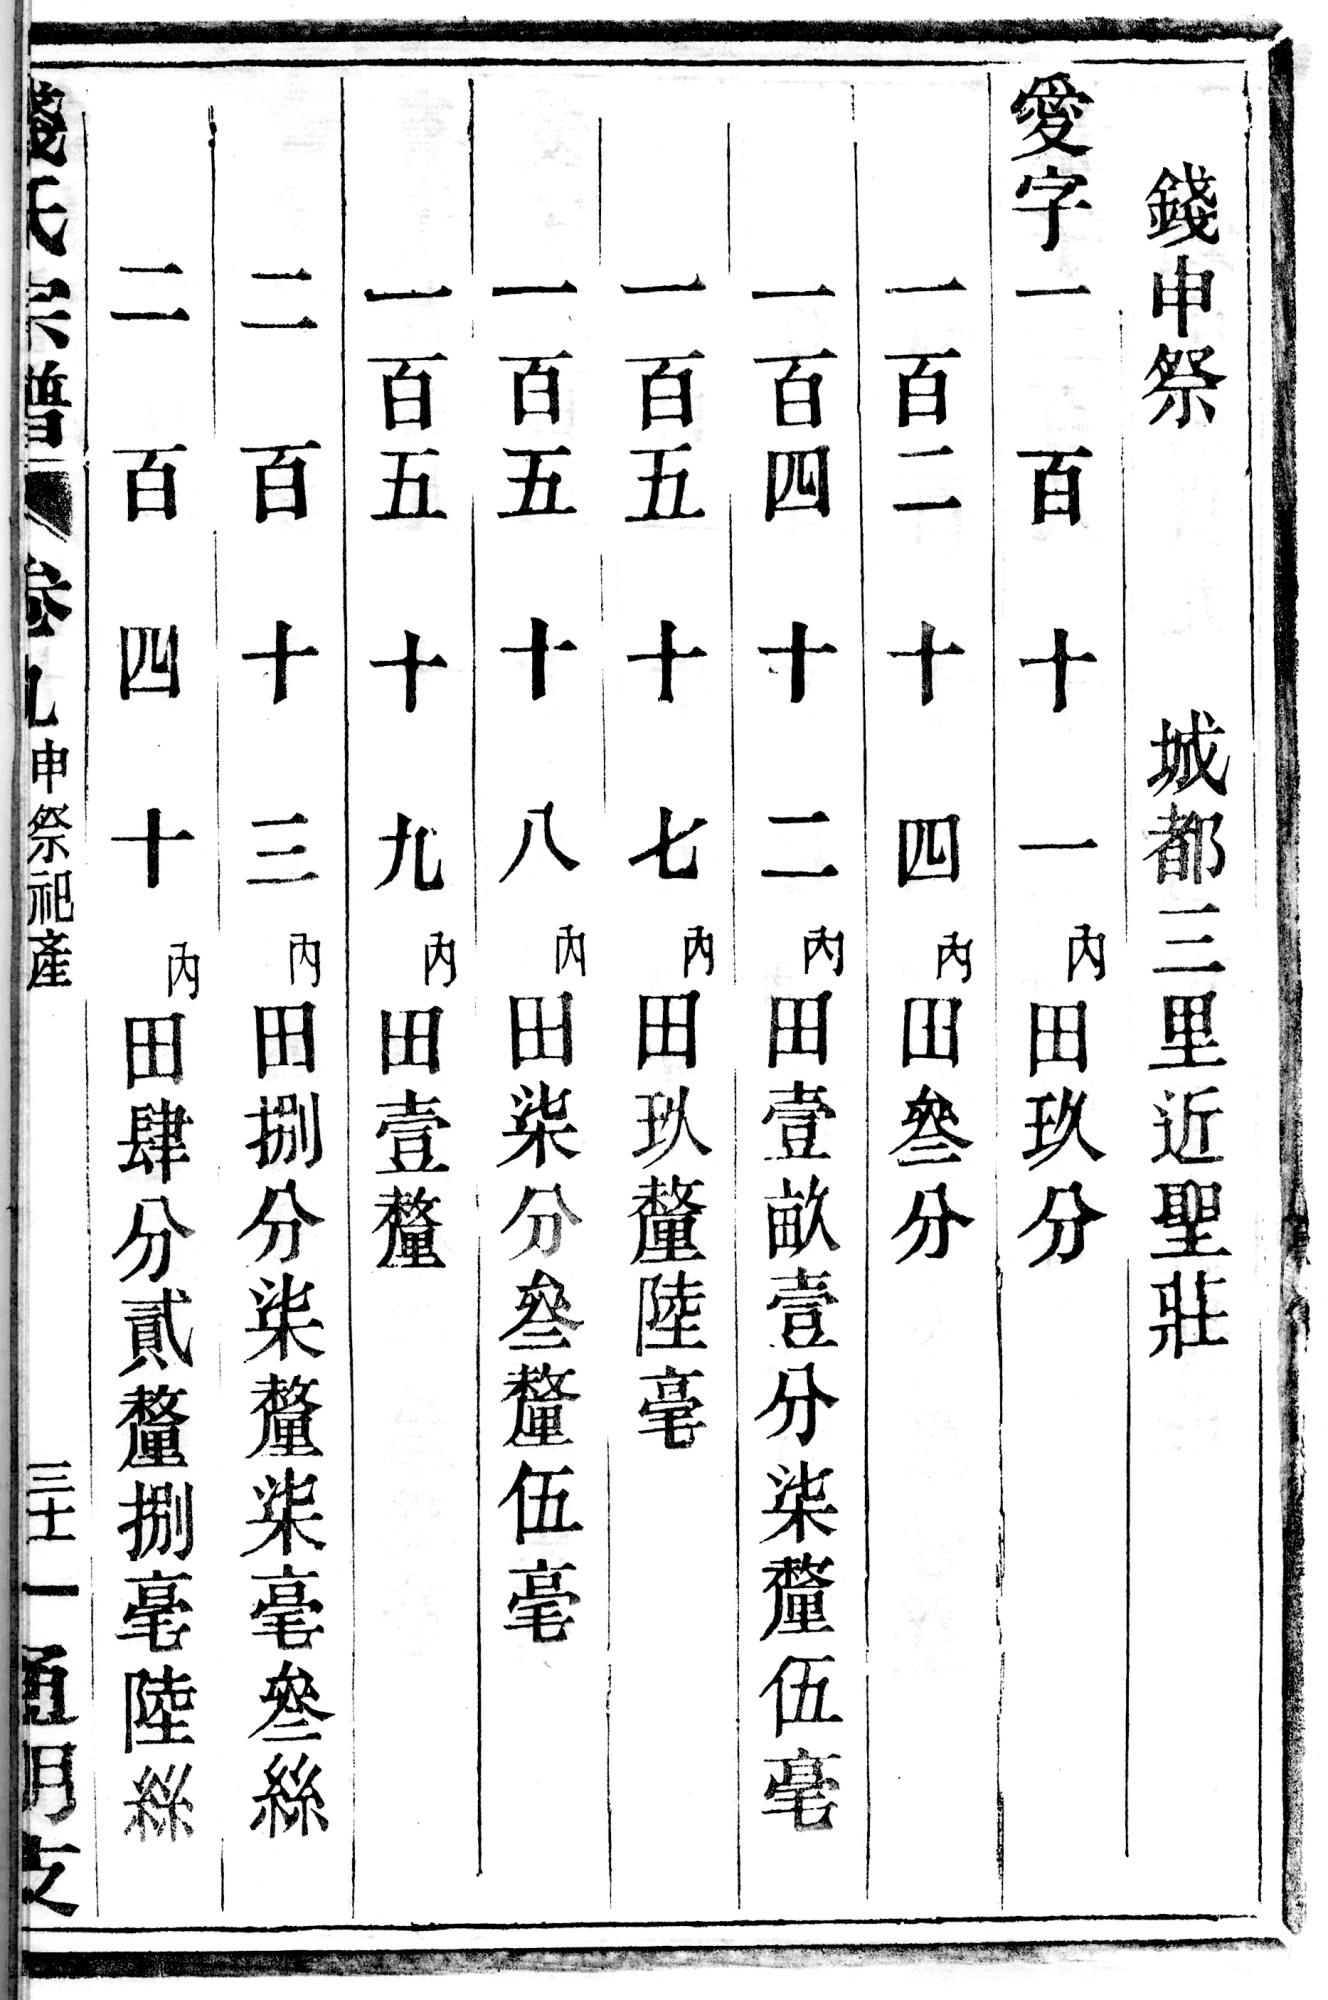 錢申祭 城都三里近聖莊
愛字一百十一內田玖分
一百二十四內田叄分
一百四十二內田壹畝壹分柒釐伍毫
一百五十七內田玖釐陸毫
一百五十八內田柒分叄釐伍毫
一百五十九內田壹釐
二百十三內田捌分柒釐柒毫叄絲
二百四十內田肆分貳釐捌毫陸絲
錢氏宗譜 卷九 申祭祀產 三十一 通明支